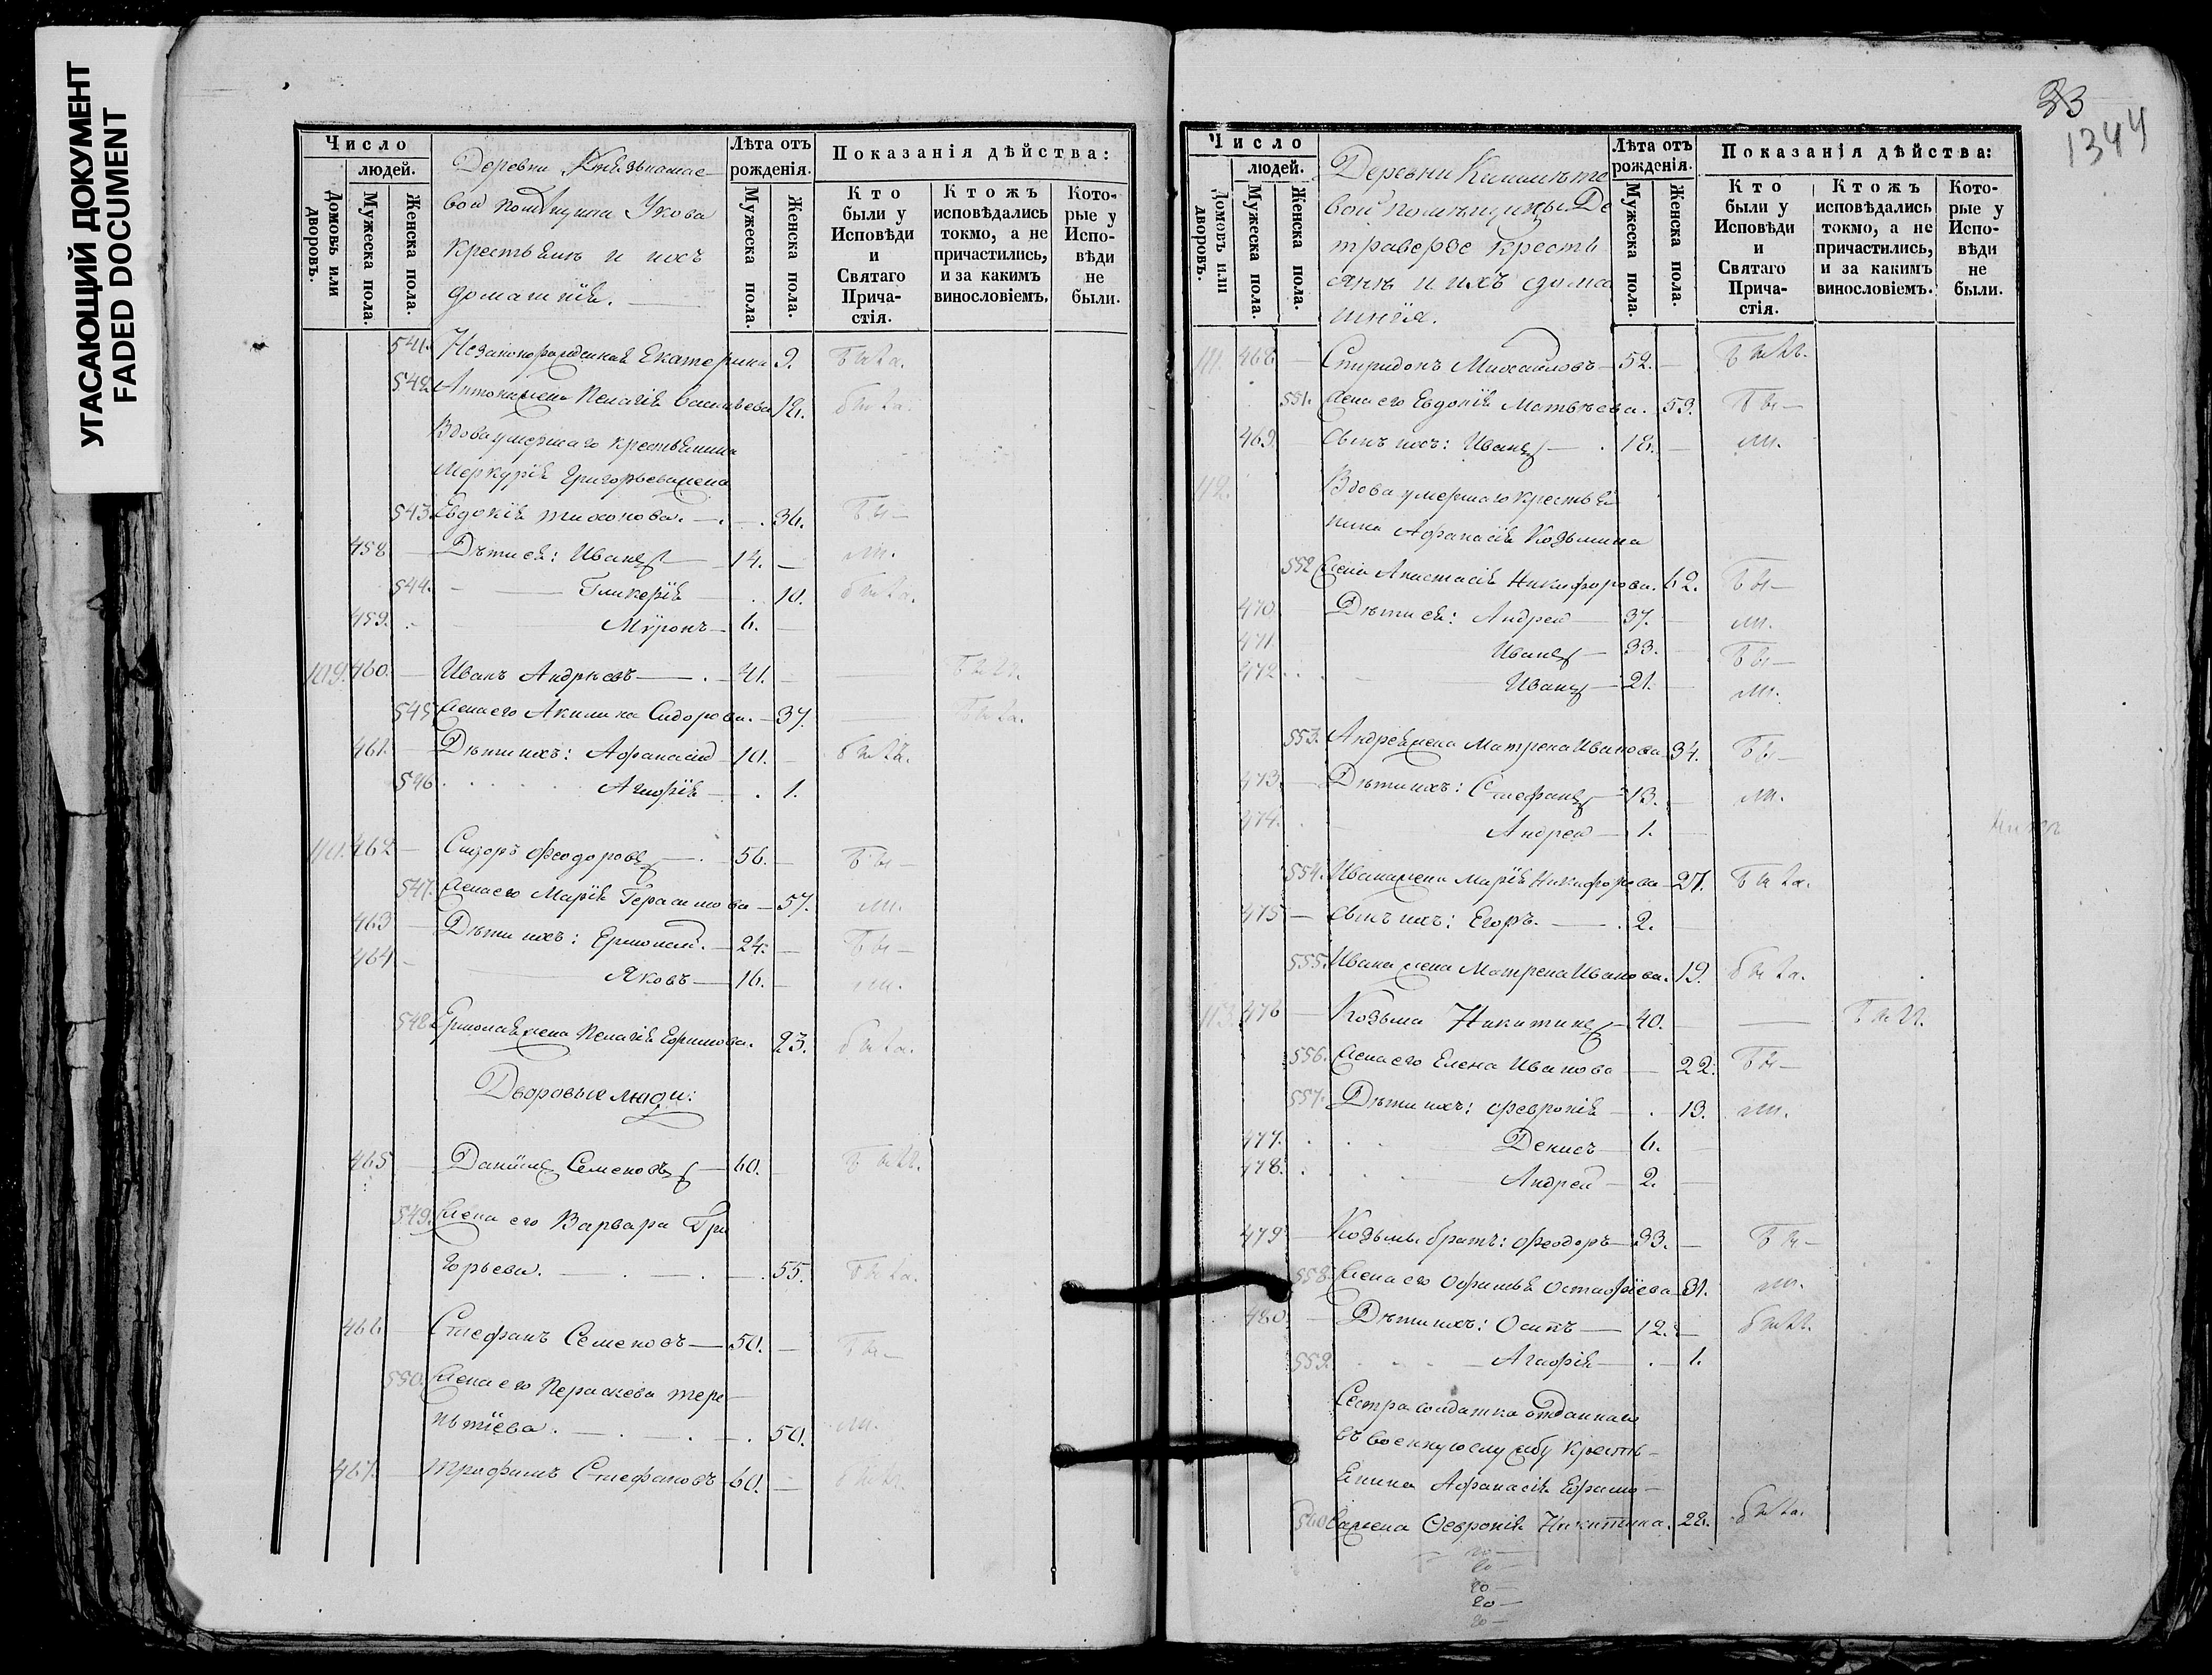 УГАСАЮЩИЙ ДОКУМЕНТ
FADED DOCUMENT
Число
людей.
Домовъ или дворовъ.
Мужеска пола.
Женска пола.
Деревни
вой помѣщика Укова
крестьяне и ихъ
домашнія.
Лѣта отъ рожденія.
Мужеска пола.
Женска пола.
Показанія дѣйства:
Кто были у Исповѣди и Святаго Прича-стія.
Ктожъ исповѣдались токмо, а не причастились, и за какимъ винословіемъ.
Кото-рые у Испо-вѣди не были.
541. Незаконорожденная Екатерина 9. была.
542. Антона жена Пелагія Васильева 18. была.
Вдова умершаго крестьянина
Меркурія Григорьева жена
543. Евдокія Тихонова. 36. бы—
458 Дѣти ея: Иванъ 14. — ли.
544. Гликерія 10. была.
459. Мѵронъ 6. —
109. 460. Иванъ Андрѣевъ 41. — былъ.
545. Жена его Акилина Сидорова. 37. была.
461. Дѣти ихъ: Афанасій 10. —
546 Агафія 1.
110. 462 Сидоръ Феодоровъ 56. — бы—
547. Жена его Марія Герасимова 57. ли.
463 Дѣти ихъ: Ермолай. 24. — бы—
464 Яковъ 16. — ли.
548. Ермолая жена Пелагія Ефимова. 23. была.
Дворовые люди:
465 Даніилъ Семеновъ 60. — былъ.
549. Жена его Варвара Гри
горьева. 55. была.
466 Стефанъ Семеновъ 50. — бы—
550. Жена его Параскева Тере
нтіева. 50. ли.
467. Трофимъ Стефановъ 60. — былъ.
33
1344
Число
людей.
Домовъ или дворовъ.
Мужеска пола.
Женска пола.
Деревни
вой помѣщицы Де
траверсе кресть
янъ и ихъ дома
шнія.
Лѣта отъ рожденія.
Мужеска пола.
Женска пола.
Показанія дѣйства:
Кто были у Исповѣди и Святаго Прича-стія.
Ктожъ исповѣдались токмо, а не причастились, и за какимъ винословіемъ.
Кото-рые у Испо-вѣди не были.
111. 468 — Спиридонъ Михаиловъ 52. — былъ.
551. Жена его Евдокія Матвѣева. 59. бы—
469. Сынъ ихъ: Иванъ 18. — ли.
112. Вдова умершаго крестья
нина Афанасія Козьмина
552 жена Анастасія Никифорова. 62. бы—
470. Дѣти ея: Андрей 37. — ли.
471 Иванъ 33. — бы—
472. Иванъ 21. — ли.
553. Андрея жена Матрена Иванова 34. бы—
473. — Дѣти ихъ: Стефанъ 13. — ли.
474. Андрей 1. —
554. Ивана жена Марія Никифорова 27. была.
475 — Сынъ ихъ: Егоръ. 2. —
555. Ивана жена Матрена Иванова. 19. была.
113. 476 — Козьма Никитинъ 40. — былъ.
556. Жена его Елена Иванова 22. бы—
557. Дѣти ихъ: Февронія 13. ли.
477. Денисъ 6. —
478. Андрей 2. —
479 — Козьмы братъ: Феодоръ 33. — бы—
558. Жена его Офимья Остафіева 31. ли.
480. — Дѣти ихъ: Осипъ 12. — былъ.
559. Агафія — 1.
Сестра солдатка отданнаго
въ военную службу кресть-
янина Афанасія Ефимо-
560. ва жена Февронія Никитина. 28. была.
20 —
20 —
20 —
20 —
20 —